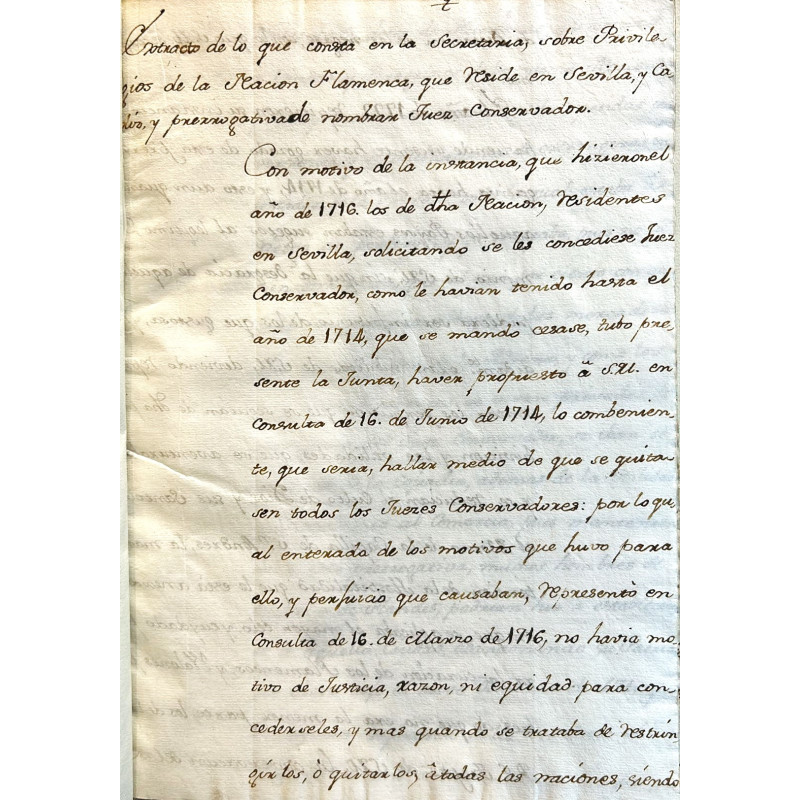 Extracto de lo que consta en la Secretaria, sobre Privile
gios de la Nacion Flamenca, que reside en Sevilla, y Ca
diz, y prerrogativa de nombrar Juez Conservador.
Con motivo de la instancia, que hizieron el
año de 1716. los de dha Nacion, residentes
en Sevilla, solicitando se les concediese Juez
Conservador, como le havian tenido hasta el
año de 1714, que se mandó cesase, tubo pre-
sente la Junta, haver propuesto â S.M. en
Consulta de 16. de Junio de 1714, lo combenien-
te, que seria, hallar medio de que se quita-
sen todos los Juezes Conservadores: por lo qu.
al enterado de los motivos que huvo para
ello, y perjuicio que causaban, representò en
Consulta de 16. de Marzo de 1716, no havia mo-
tivo de Justicia, razon, ni equidad para con-
cederseles, y mas quando se trataba de restrin
gir los, ò quitarlos, â todas las naciones, siendo